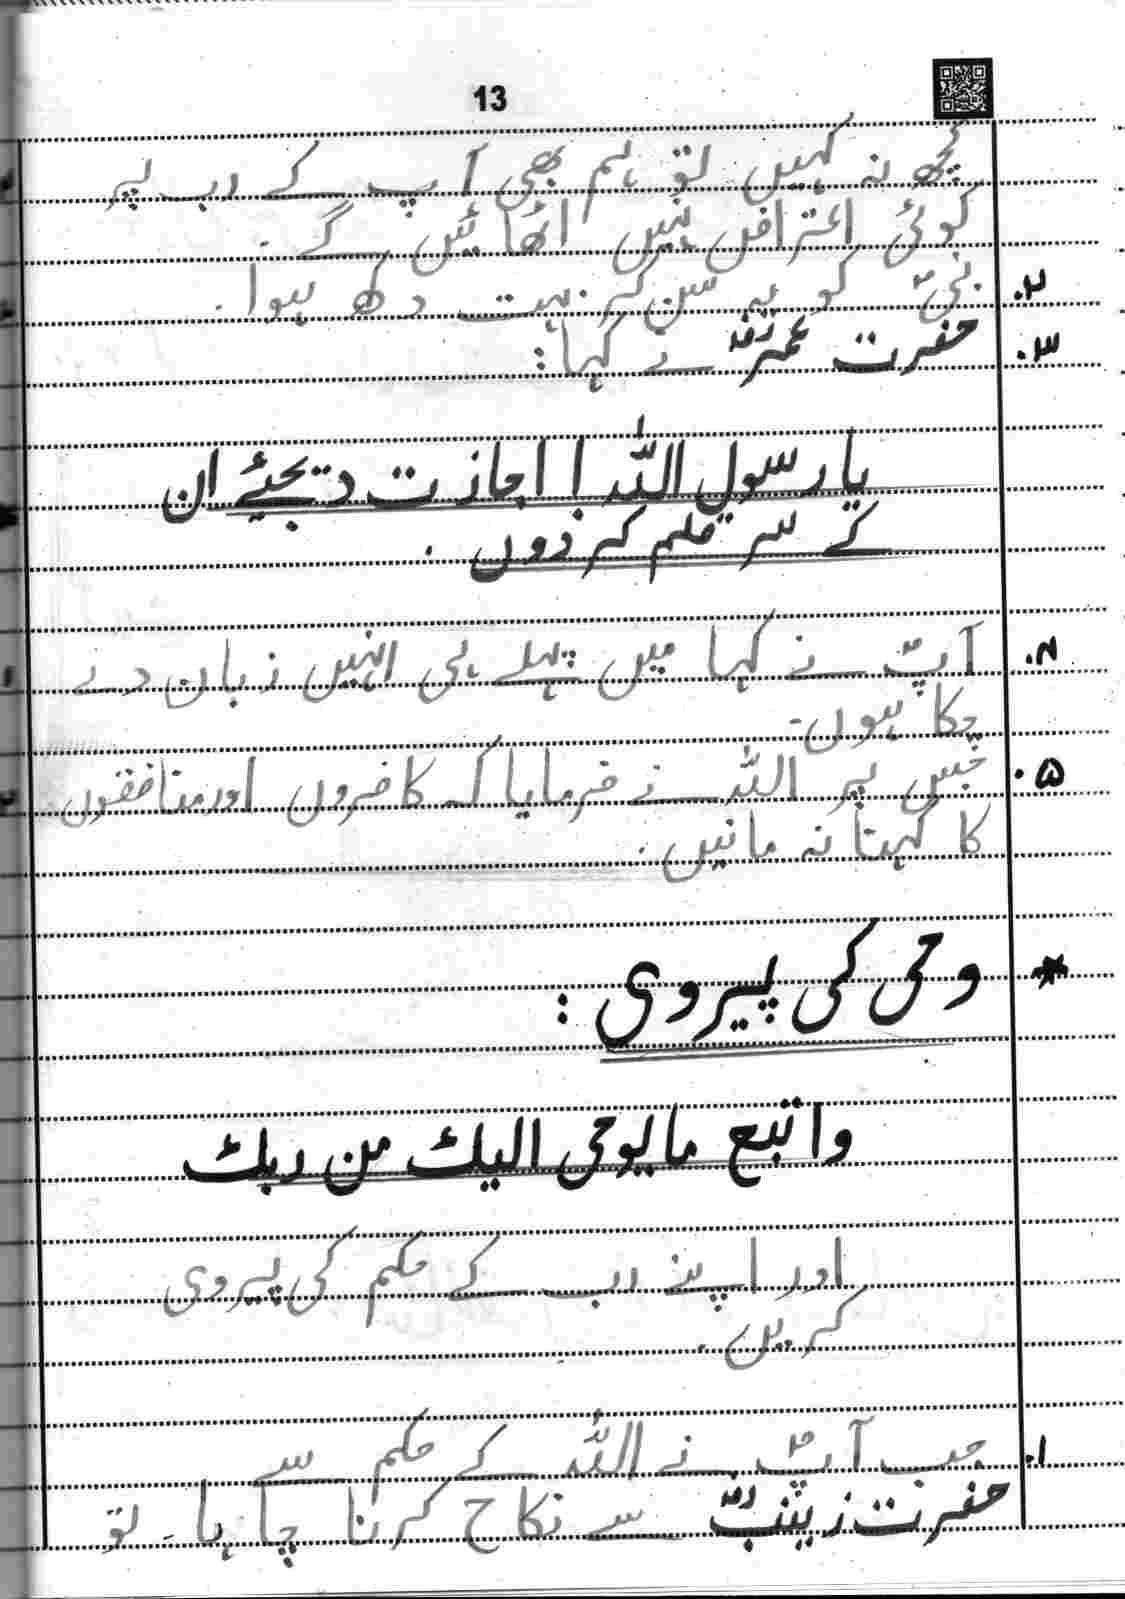 13
کچھ نہ کہیں تو ہم بھی آپ کے رب پر
کوئی اعتراض نہیں اٹھائیں گے.
۲. نبیؐ کو یہ سن کر بہت دکھ ہوا.
۳. حضرت عمرؓ نے کہا:
یا رسول اللہ! اجازت دیجئے ان
کے سر قلم کر دوں.
۴. آپؐ نے کہا میں پہلے ہی انہیں زبان دے
چکا ہوں۔
۵. جس پر اللہ نے فرمایا کہ کافروں اور منافقوں
کا کہنا نہ مانیں.
* وحی کی پیروی:
واتبع ما یوحی الیک من ربک
اور اپنے رب کے حکم کی پیروی
کریں.
۱. جب آپؐ نے اللہ کے حکم سے
حضرت زینبؓ سے نکاح کرنا چاہا۔ تو